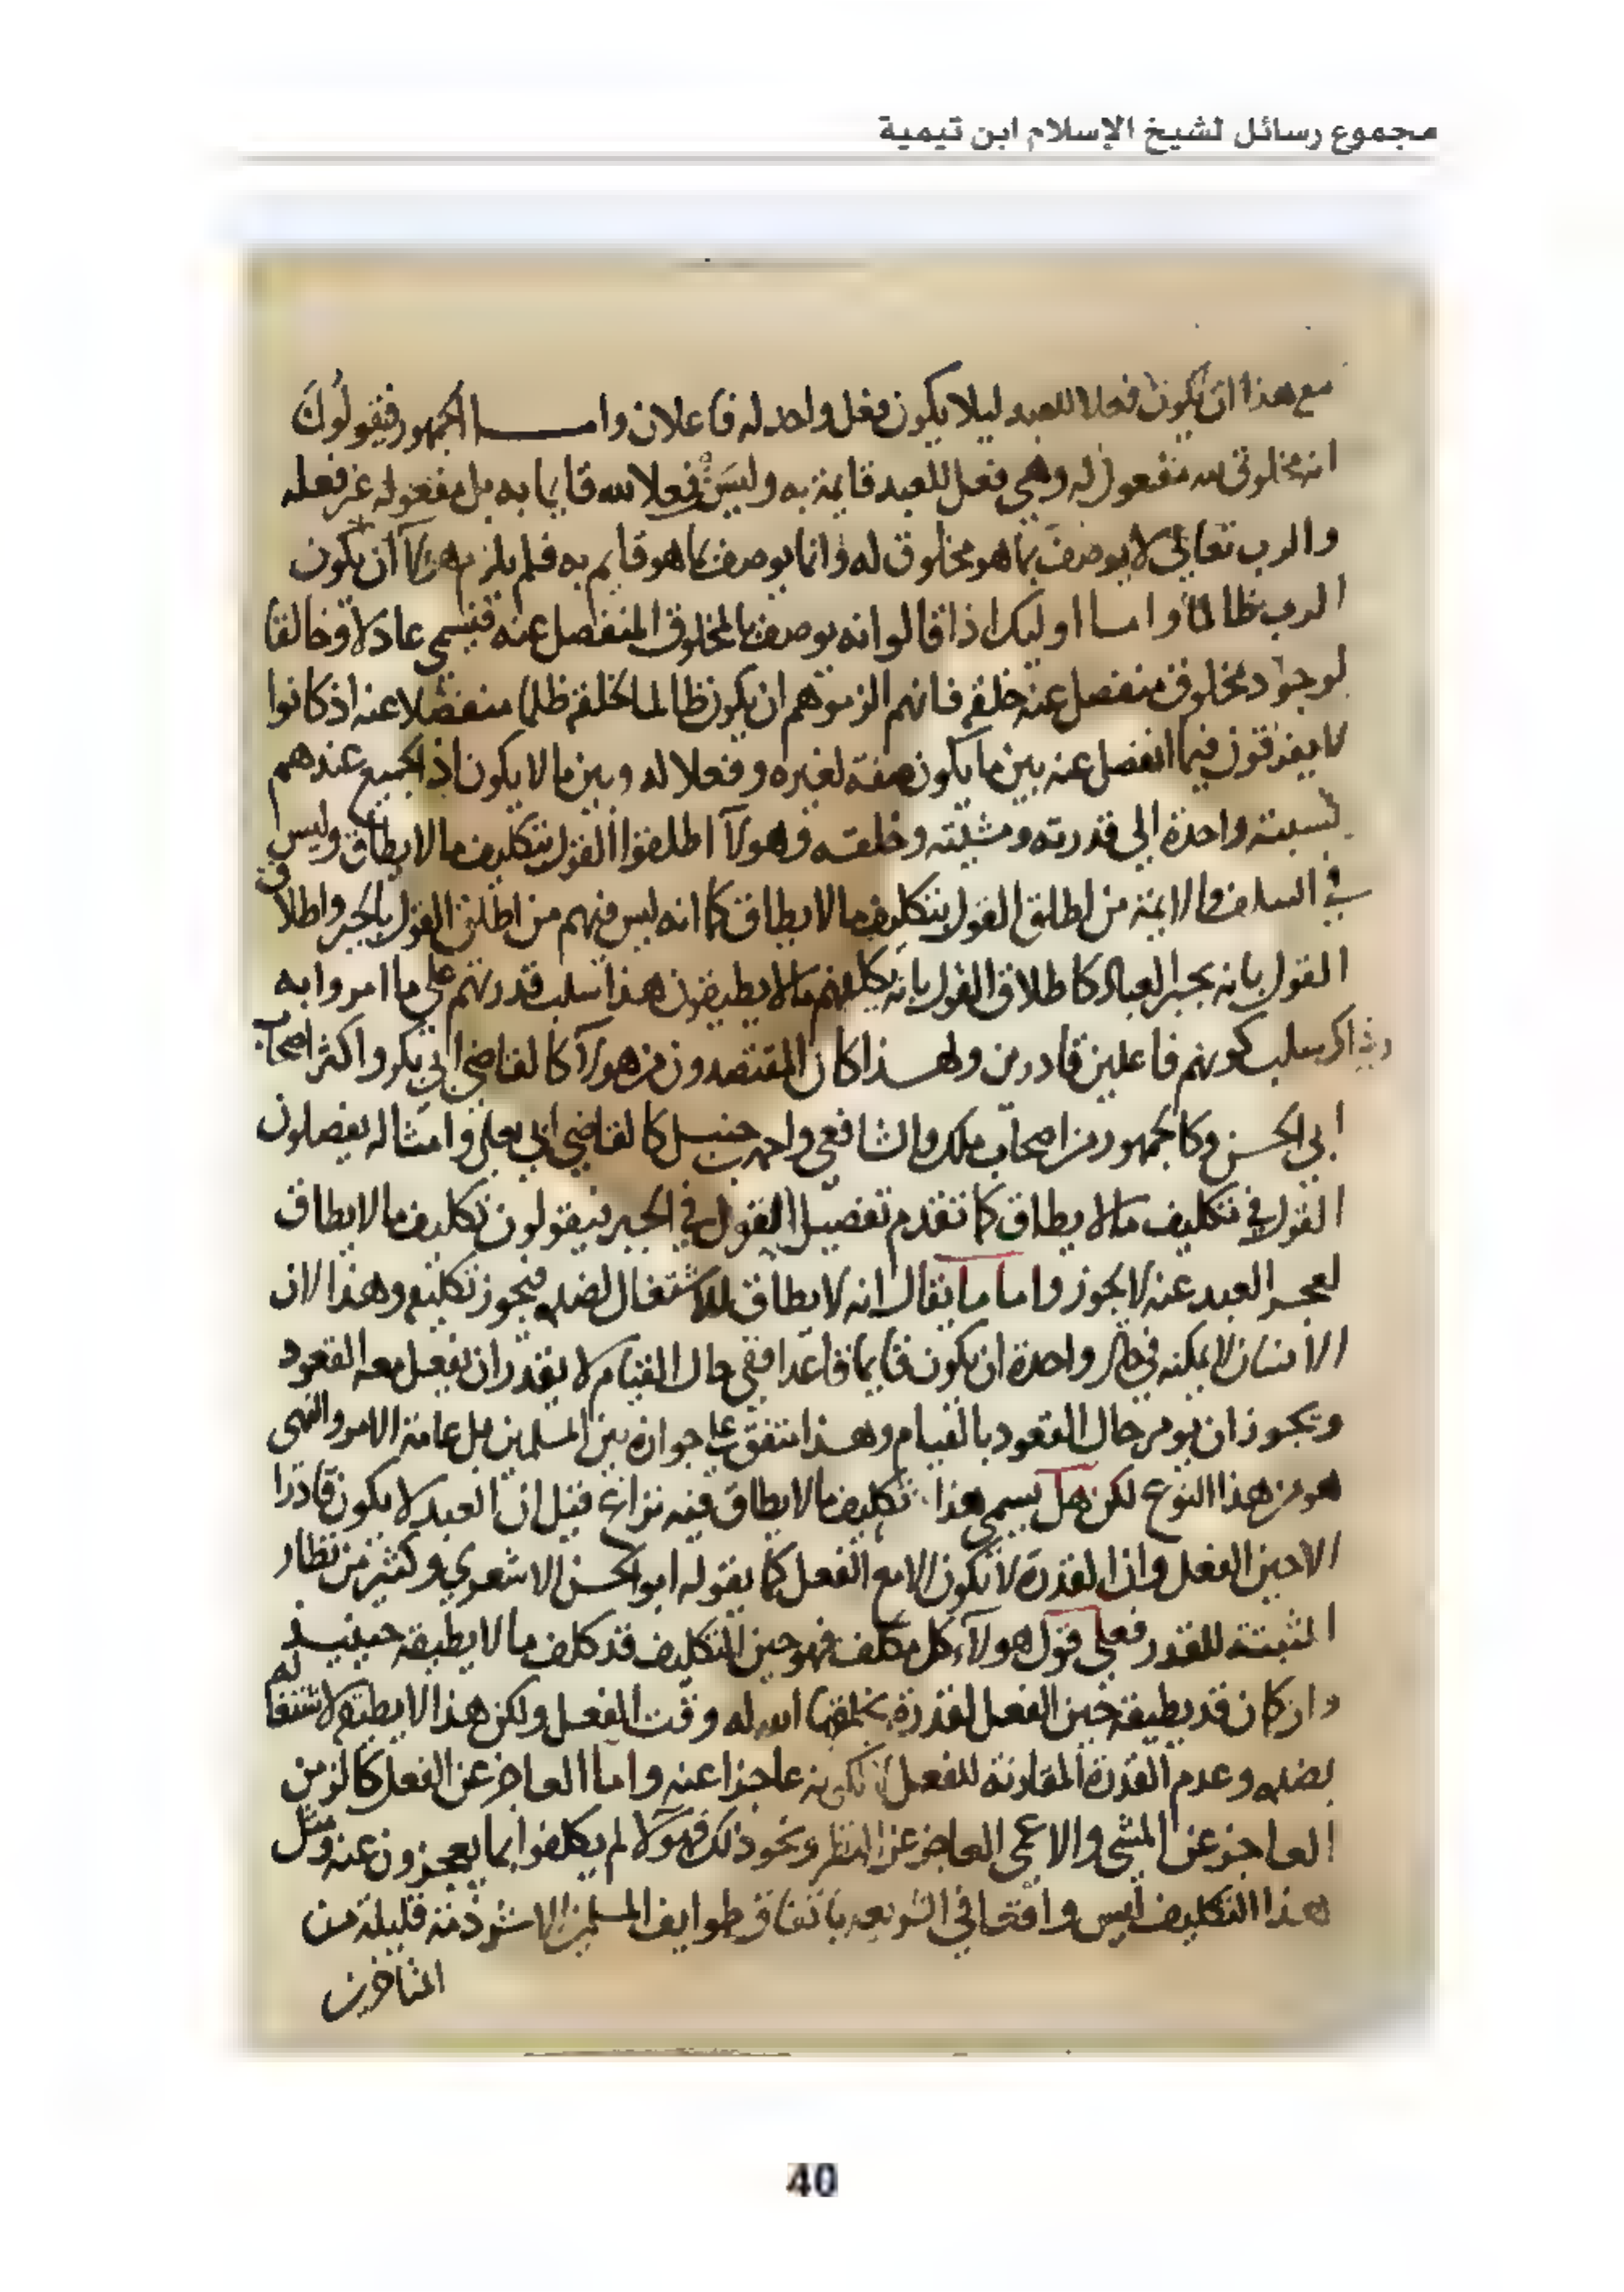 مجموع رسائل لشيخ الإسلام ابن تيمية
مع هذا ان يكون فعلا للعبد ليلا يكون فعل واحد له فاعلان واما الجمهور فيقولون
انه مخلوق لله مفعول له وهي فعل للعبد قايمة به وليس فعلا لله قايما به بل مفعوله غير فعله
والرب تعالى لا يوصف بما هو مخلوق له وانما يوصف بما هو قايم به فلم يلزم هولآ ان يكون
الرب ظالما واما اوليك اذا قالوا انه يوصف بالمخلوق المنفصل عنه فيسمى عادلا وخالقا
لوجود مخلوق منفصل عنه خلقه فانهم الزموهم ان يكون ظالما لخلقه ظلما منفصلا عنه اذ كانوا
لا يفرقون فيما انفصل عنه بين ما يكون صفة لغيره وفعلا له وبين ما لا يكون اذ الجميع عندهم
نسبته واحدة الى قدرته ومشيته وخلقه وهولآ اطلقوا القول بتكليف ما لا يطاق وليس
في السلف والايمة من اطلق القول بتكليف ما لا يطاق كما انه ليس فيهم من اطلق القول بالجبر واطلاق
القول بانه يجبر العباد كاطلاق القول بانه يكلفهم ما لا يطيقون هذا سلب قدرتهم على ما امروا به
وذاك سلب كونهم فاعلين قادرين ولهذا كان المقتصدون من هولآ كالقاضي ابي بكر واكثر اصحاب
ابي الحسن وكالجمهور من اصحاب ملك والشافعي واحمد بن حنبل كالقاضي ابي يعلى وامثاله يفصلون
القول في تكليف ما لا يطاق كما تقدم تفصيل القول في الجبر فيقولون تكليف ما لا يطاق
لعجز العبد عنه لا يجوز واما ما يقال انه لا يطاق للاشتغال بضده فيجوز تكليفه وهذا لان
الانسان لا يمكنه في حال واحدة ان يكون قايما قاعدا ففي حال القيام لا يقدر ان يفعل معه القعود
ويجوز ان يومر حال القعود بالقيام وهذا متفق على جوازه بين المسلمين بل عامة الامر والنهي
هو من هذا النوع لكن هل يسمى هذا تكليف ما لا يطاق فيه نزاع قيل ان العبد لا يكون قادرا
الا حين الفعل وان القدرة لا تكون الا مع الفعل كما يقوله ابو الحسن الاشعري وكثير من نظار
المثبتة للقدر فعلى قول هولآء كل مكلف فهو حين التكليف قد كلف ما لا يطيقه حينيذ
وان كان قد يطيقه حين الفعل لقدرة يخلقها الله له وقت الفعل ولكن هذا لا يطيقه لاشتغاله
بضده وعدم القدرة المقارنة للفعل لا لكونه عاجزا عنه واما العاجز عن الفعل كالزمن
العاجز عن المشي والاعمى العاجز عن النظر ونحو ذلك فهولآ لم يكلفوا بما يعجزون عنه ومثل
هذا التكليف ليس واقعا في الشريعة باتفاق طوايف المسلمين الا شرذمة قليلة من
المتاخرين
40